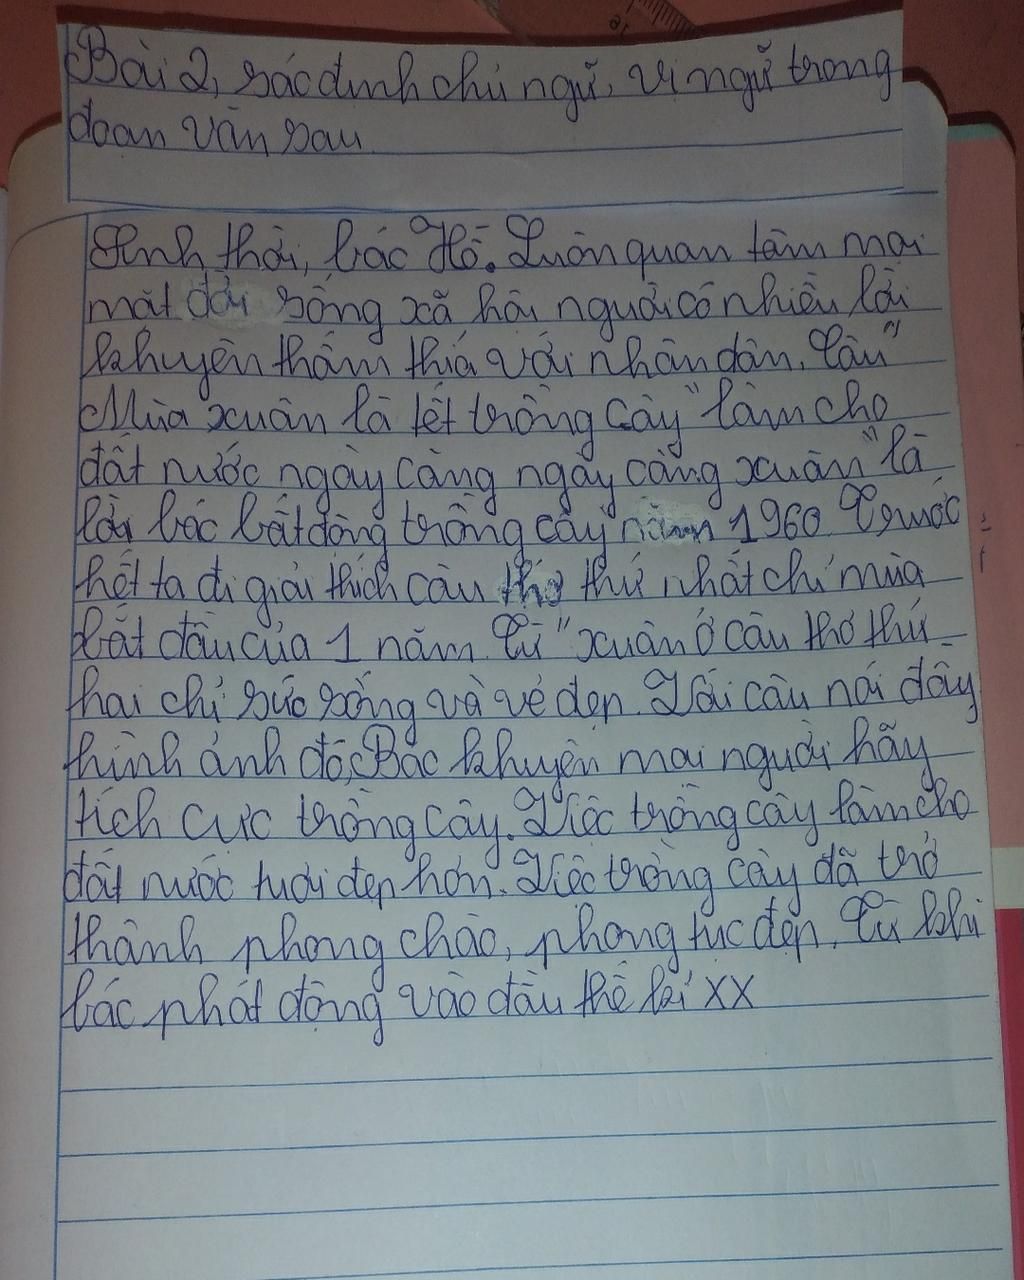 Bài 2, sác định chủ ngữ, vị ngữ trong
đoạn văn sau
Sinh thời, bác Hồ. Luôn quan tâm mọi
mặt đời sống xã hội người có nhiều lời
khuyên thấm thía với nhân dân. Câu "
Mùa xuân là tết trồng cây" làm cho
đất nước ngày càng ngày càng xuân" là
lời bác bắt động trồng cây năm 1960. Trước
hết ta đi giải thích câu thơ thứ nhất chỉ mùa
bắt đầu của 1 năm. Từ "xuân ở câu thơ thứ
hai chỉ sức sống và vẻ đẹp. Với câu nói đầy
hình ảnh đó, Bác khuyên mọi người hãy
tích cực trồng cây. Việc trồng cây làm cho
đất nước tươi đẹp hơn. Việc trồng cây đã trở
thành phong chào, phong tục đẹp. Từ khi
bác phát động vào đầu thế kỉ XX